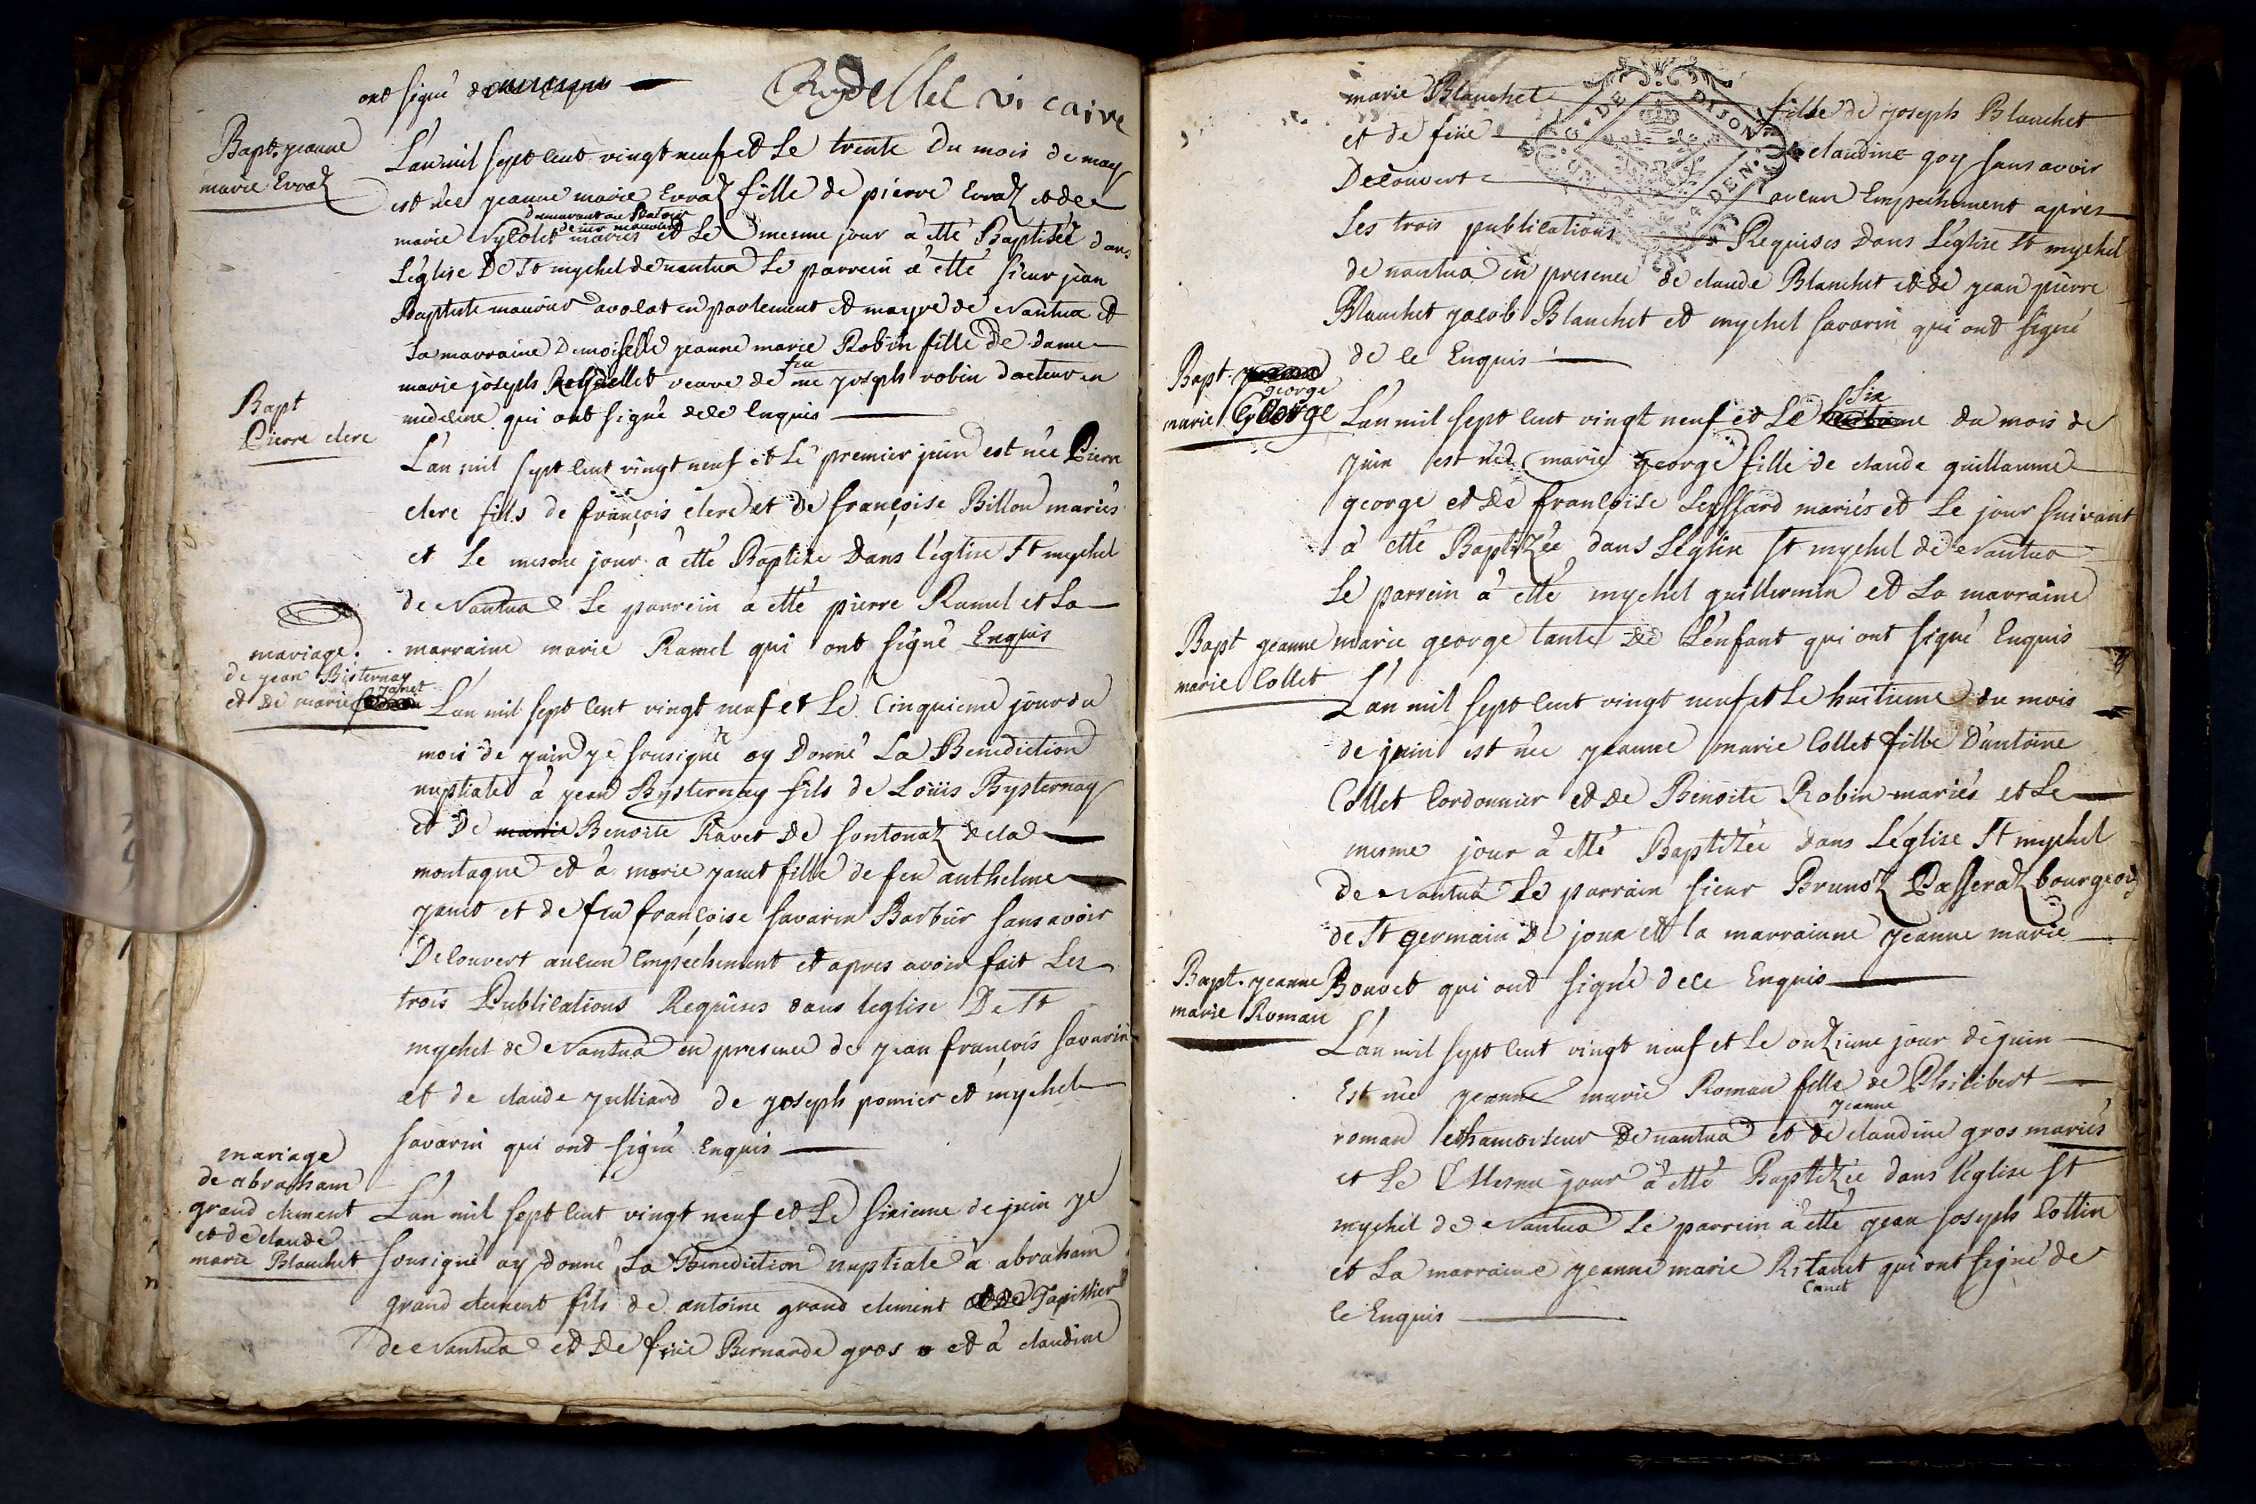 ont signé de ce enquis
Ruydellet vicaire
Bapt. jeanne
marie Evraz
L'an mil sept cent vingt neuf et le trente du mois de may
est née jeanne marie Evraz fille de pierre Evraz et de
demeurant au
de sier mauvier
marie Nycolet mariés et le mesme jour à etté Baptisée dans
L'église De St mychel de nantua Le parrein a etté sieur jean
Baptiste mauvier avocat en parlement et mayre de Nantua et
La marraine Demoiselle jeanne marie Robin fille de dame
feu
marie joseph Reydellet veuve de me joseph robin docteur en
medecine qui ont signé de ce enquis
Bapt
Pierre clerc
L'an mil sept cent vingt neuf et le premier juin est née Pierre
clerc fils de françois clerc et de françoise Billon mariés
et le mesme jour à etté Baptisé Dans l'église St mychel
de Nantua Le parrein a etté pierre Ramel et La
marraine marie Ramel qui ont signé Enquis
mariage
de jean Bisternay
janet
et de marie
L'an mil sept cent vingt neuf et Le Cinquieme jour du
mois de juin je sousigné ay Donné La Benediction
nuptiale à jean Bysternay fils de Loüis Bysternay
et De marie Benoite Ravet De sontonaz de la
montagne et à marie janet fille de feu anthelme
janet et de feu françoise savarin Barbier sans avoir
Decouvert aucun empechement et apres avoir fait Les
trois Publications Requises dans leglise De St
mychel de Nantua en presence de jean françois savarin
et de claude julliard de joseph pomier et mychel
savarin qui ont signé Enquis
mariage
de abraham
grand clement
et de claude
marie Blanchet
L'an mil sept cent vingt neuf et Le sixieme de juin je
sousigné ay donné La Benediction nuptiale à abraham
grand clement fils de antoine grand clement et de Tapissier
de Nantua et De feüe Bernarde gros et à claudine
marie Blanchet fille de joseph Blanchet
et de feüe claudine goy sans avoir
Decouvert aucun Empechement apres
Les trois publications Requises Dans L'église St mychel
de nantua en presence de claude Blanchet et de jean pierre
Blanchet jacob Blanchet et mychel savarin qui ont signé
de ce Enquis
G. DE DIJON
Bapt. jeanne
george
marie George
six
L'an mil sept cent vingt neuf et Le huitieme du mois de
juin est née marie george fille de claude guillaume
george et de françoise Seyssard mariés et Le jour suivant
à etté Baptizée dans L'eglise St mychel de Nantua
Le parrein à etté mychel guillermin et La marraine
marie george tante De L'enfant qui ont signé Enquis
Bapt jeanne
marie Collet
L'an mil sept cent vingt neuf et Le huitieme du mois
de juin est née jeanne marie Collet fille D'antoine
Collet Cordonnier et De Benoite Robin mariés et Le
mesme jour à etté Baptizée dans L'église St mychel
de Nantua Le parrain sieur Brunoz Passeraz bourgeois
de St germain De joux et la marrainne jeanne marie
Bouvet qui ont signé de ce Enquis
Bapt. jeanne
marie Roman
L'an mil sept cent vingt neuf et Le onzieme jour de juin
Est née jeanne marie Roman fille de Philibert
jeanne
roman chamoiseur De nantua et de claudine gros mariés
et Le Mesme jour à etté Baptizée dans l'église St
mychel de Nantua Le parrein à etté jean joseph Cottin
et La marraine jeanne marie Ritanet qui ont signé de
Canet
ce Enquis